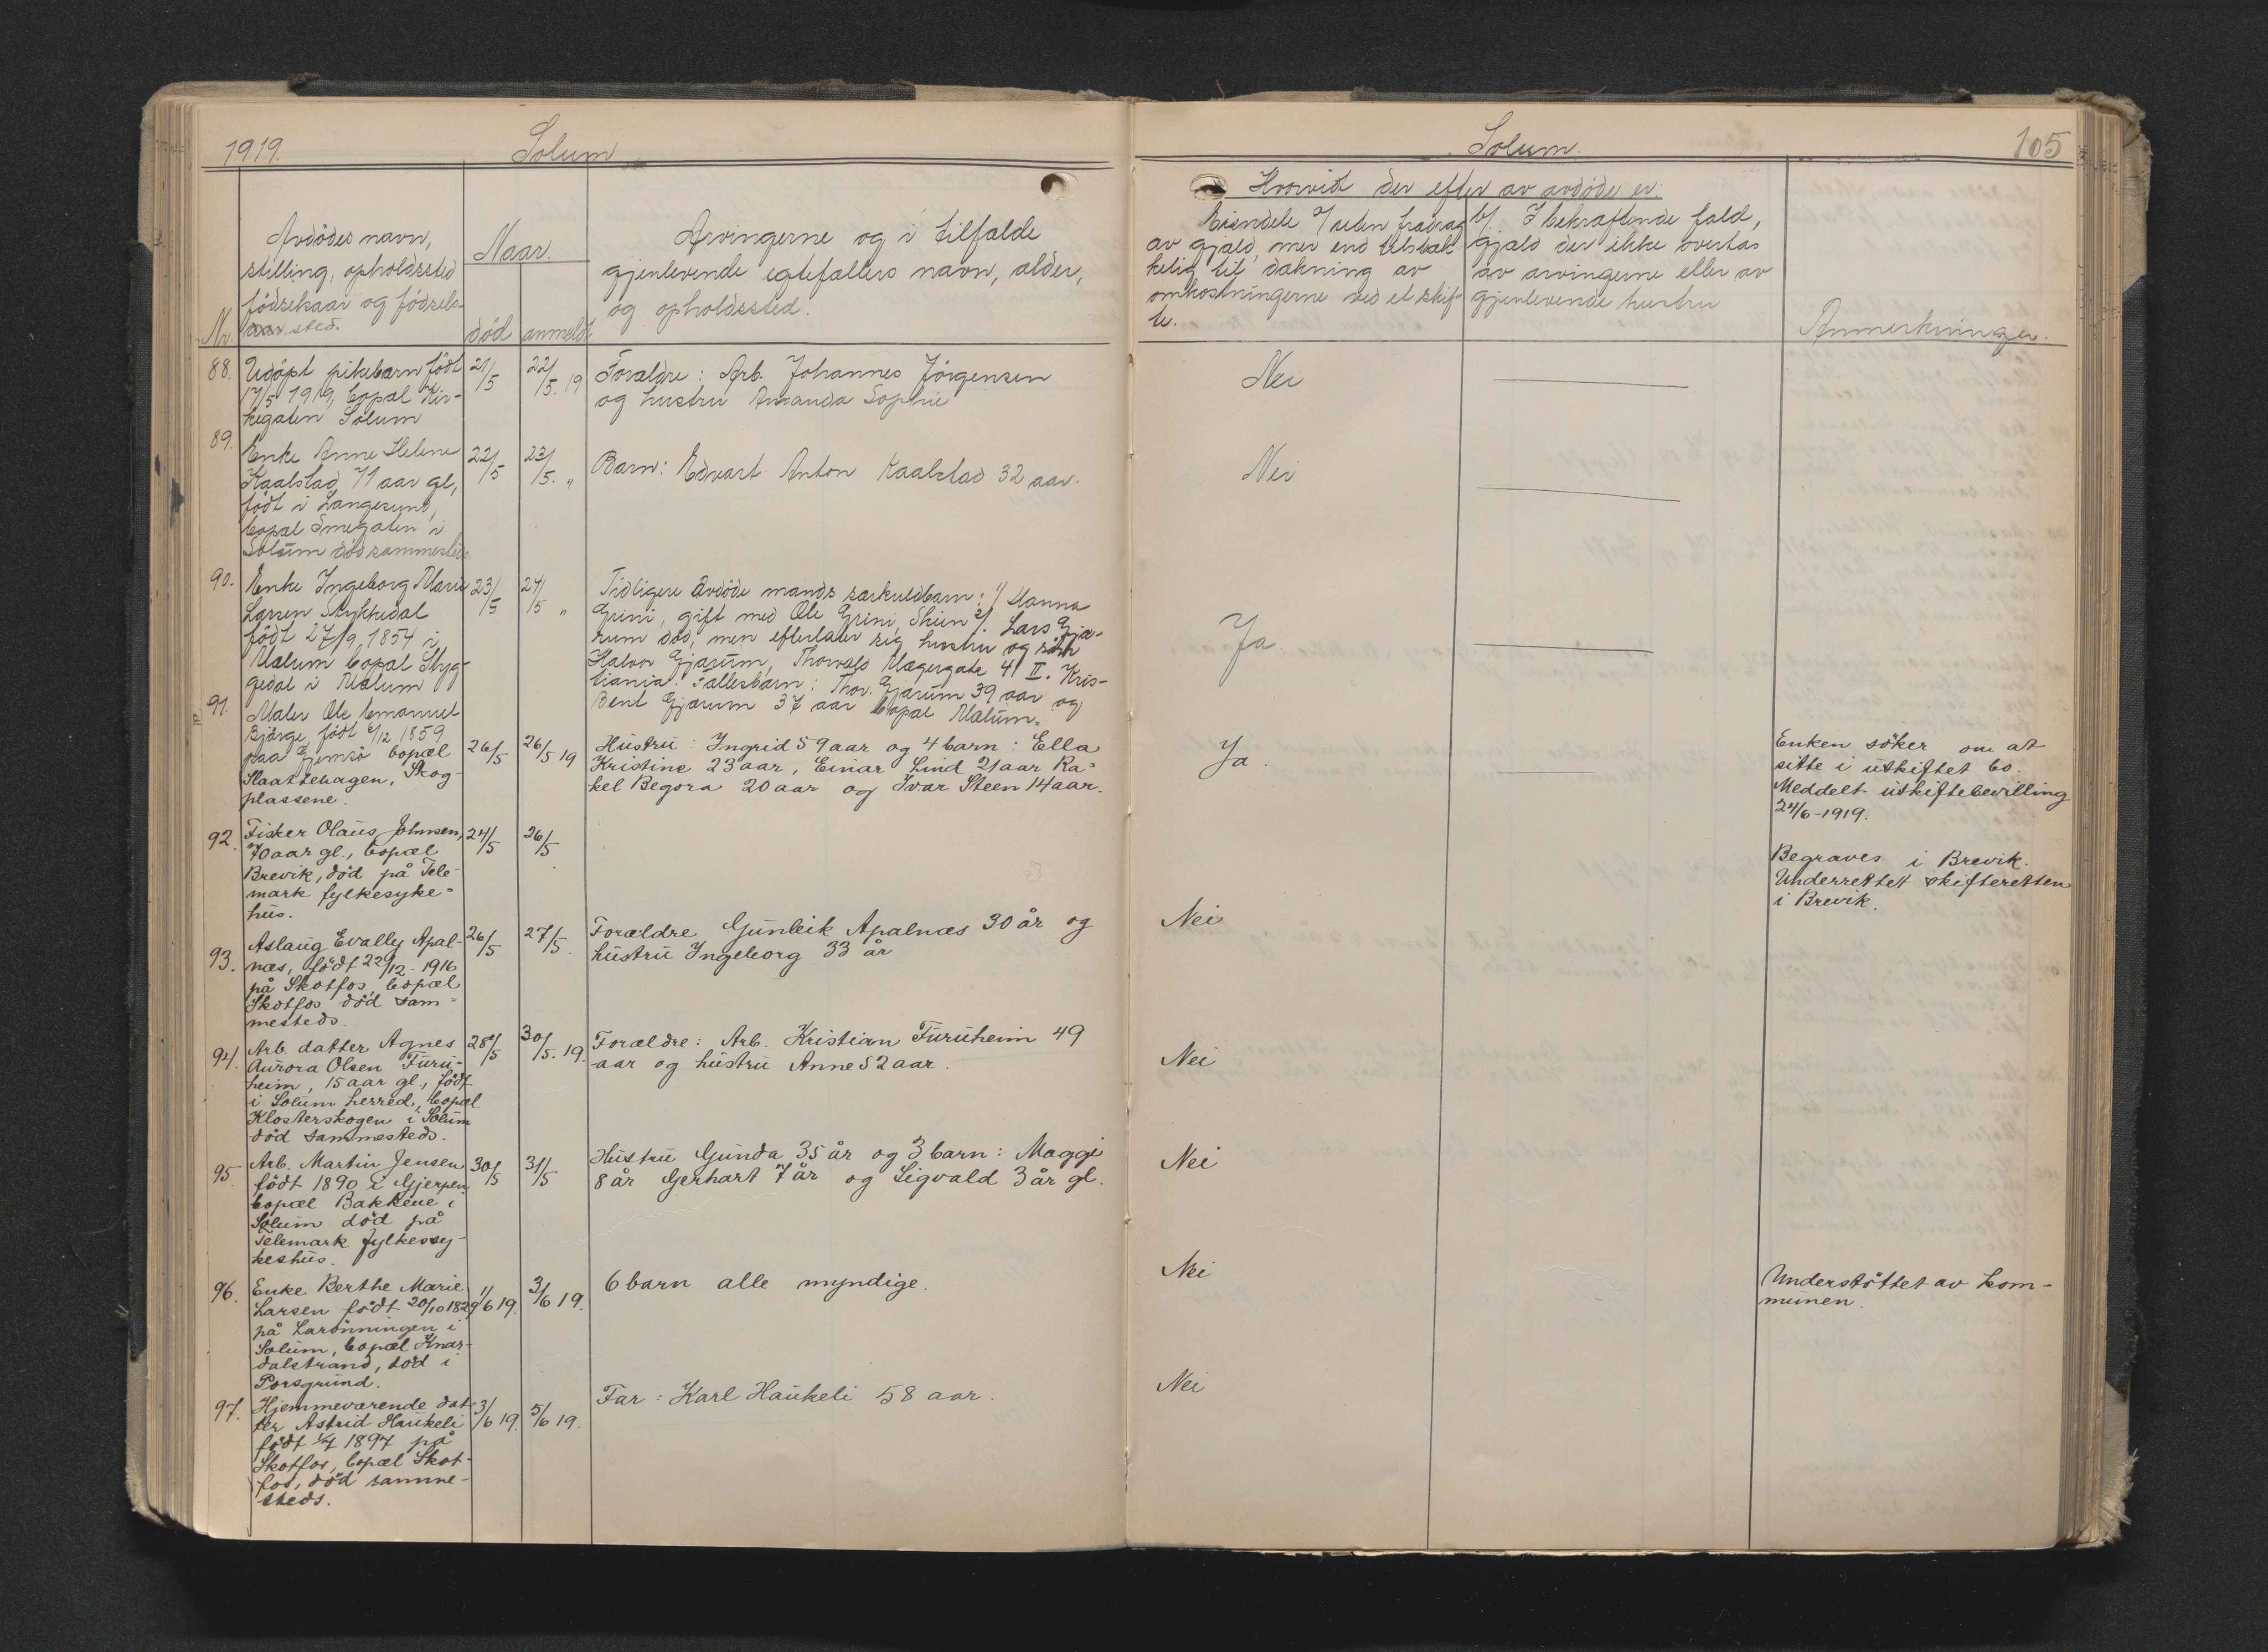 1919.
Solum
Nr.
Avdödes navn,
stilling, opholdssted
födselsaar og födsels-
sted.
Naar.
död
anmeldt
Arvingerne og i tilfælde
gjenlevende egtefællers navn, alder,
og opholdssted.
88.
Udöpt pikebarn födt
17/5 1919, bopæl Kir-
kegaten Solum
21/5
22/5. 19
Forældre: Arb. Johannes Jörgensen
og hustru Amanda Sophie
89.
Enke Anne Helene
Kaalstad 71 aar gl,
födt i Langesund,
bopæl Smegaten i
Solum död sammesteds.
22/5
23/5. "
Barn: Edvart Anton Kaalstad 32 aar.
90.
Enke Ingeborg Marie
Larsen Stykkedal
födt 27/9 1854 i
Mælum bopæl Styg-
gedal i Mælum
23/5
24/5 "
Tidligere avdöde mands særkuldbarn: 1/ Hanna
Grini, gift med Ole Grini, Skien 2/. Lars Gjæ-
rum död, men efterlater sig hustru og sön
Halvor Gjærum, Thorvald Meyersgate 41 II. Kris-
tiania. Fællesbarn: Thor. Gjærum 39 aar og
Bent Gjærum 37 aar bopæl Mælum.
91.
Maler Ole Emanuel
Bjärge, födt 6/12 1859
paa Gjemsö bopæl
Slaattehagen, Skog-
plassene.
26/5
26/5 19
Hustru: Ingrid 59 aar og 4 barn: Ella
Kristine 23 aar, Einar Lind 21 aar Ra-
kel Begora 20 aar og Ivar Steen 14 aar.
92.
Fisker Olaus Johnsen,
70 aar gl., bopæl
Brevik, död på Tele-
mark fylkesyke=
hus.
24/5
26/5
93.
Aslaug Evally Apal-
næs, födt 22/12 1916
på Skotfos, bopæl
Skotfos död sam=
mesteds.
26/5
27/5.
Forældre Gunleik Apalnæs 30 år og
hustru Ingeborg 33 år
94.
Arb. datter Agnes
Aurora Olsen Furu-
heim, 15 aar gl., födt
i Solum herred, bopæl
Klosterskogen i Solum
död sammesteds.
28/5
30/5. 19.
Forældre: Arb. Kristian Furuheim 49
aar og hustru Anne 52 aar.
95.
Arb. Martin Jensen
födt 1890 i Gjerpen
bopæl Bakkene i
Solum död på
Telemark fylkessy-
kehus.
30/5
31/5
Hustru Gunda 35 år og 3 barn: Maggi
8 år Gerhart 7 år og Sigvald 3 år gl.
96.
Enke Berthe Marie
Larsen födt 20/10 1829
på Larönningen i
Solum, bopæl Knar-
dalstrand, död i
Porsgrund.
1/6 19.
3/6 19.
6 barn alle myndige.
97.
Hjemmeværende dat-
ter Astrid Haukeli
födt 1/7 1897 på
Skotfos, bopæl Skot-
fos, död samme-
steds.
3/6 19.
5/6 19.
Far: Karl Haukeli 58 aar.
Solum.
105
Hvorvidt der efter av avdöde er.
Eiendele a/ uten fradrag
av gjæld, mer end tilstræk
kelig til dækning av
omkostningerne ved et skif-
te.
b/. I bekræftende fald,
gjæld der ikke overtas
av arvingerne eller av
gjenlevende hustru
Anmerkninger.
Nei
Nei
Ja.
Ja.
Enken söker om at
sitte i uskiftet bo.
Meddelt uskiftebevilling
24/6-1919.
Begraves i Brevik.
Underrettet skifteretten
i Brevik.
Nei
Nei
Nei
Nei
Understöttet av kom-
munen.
Nei